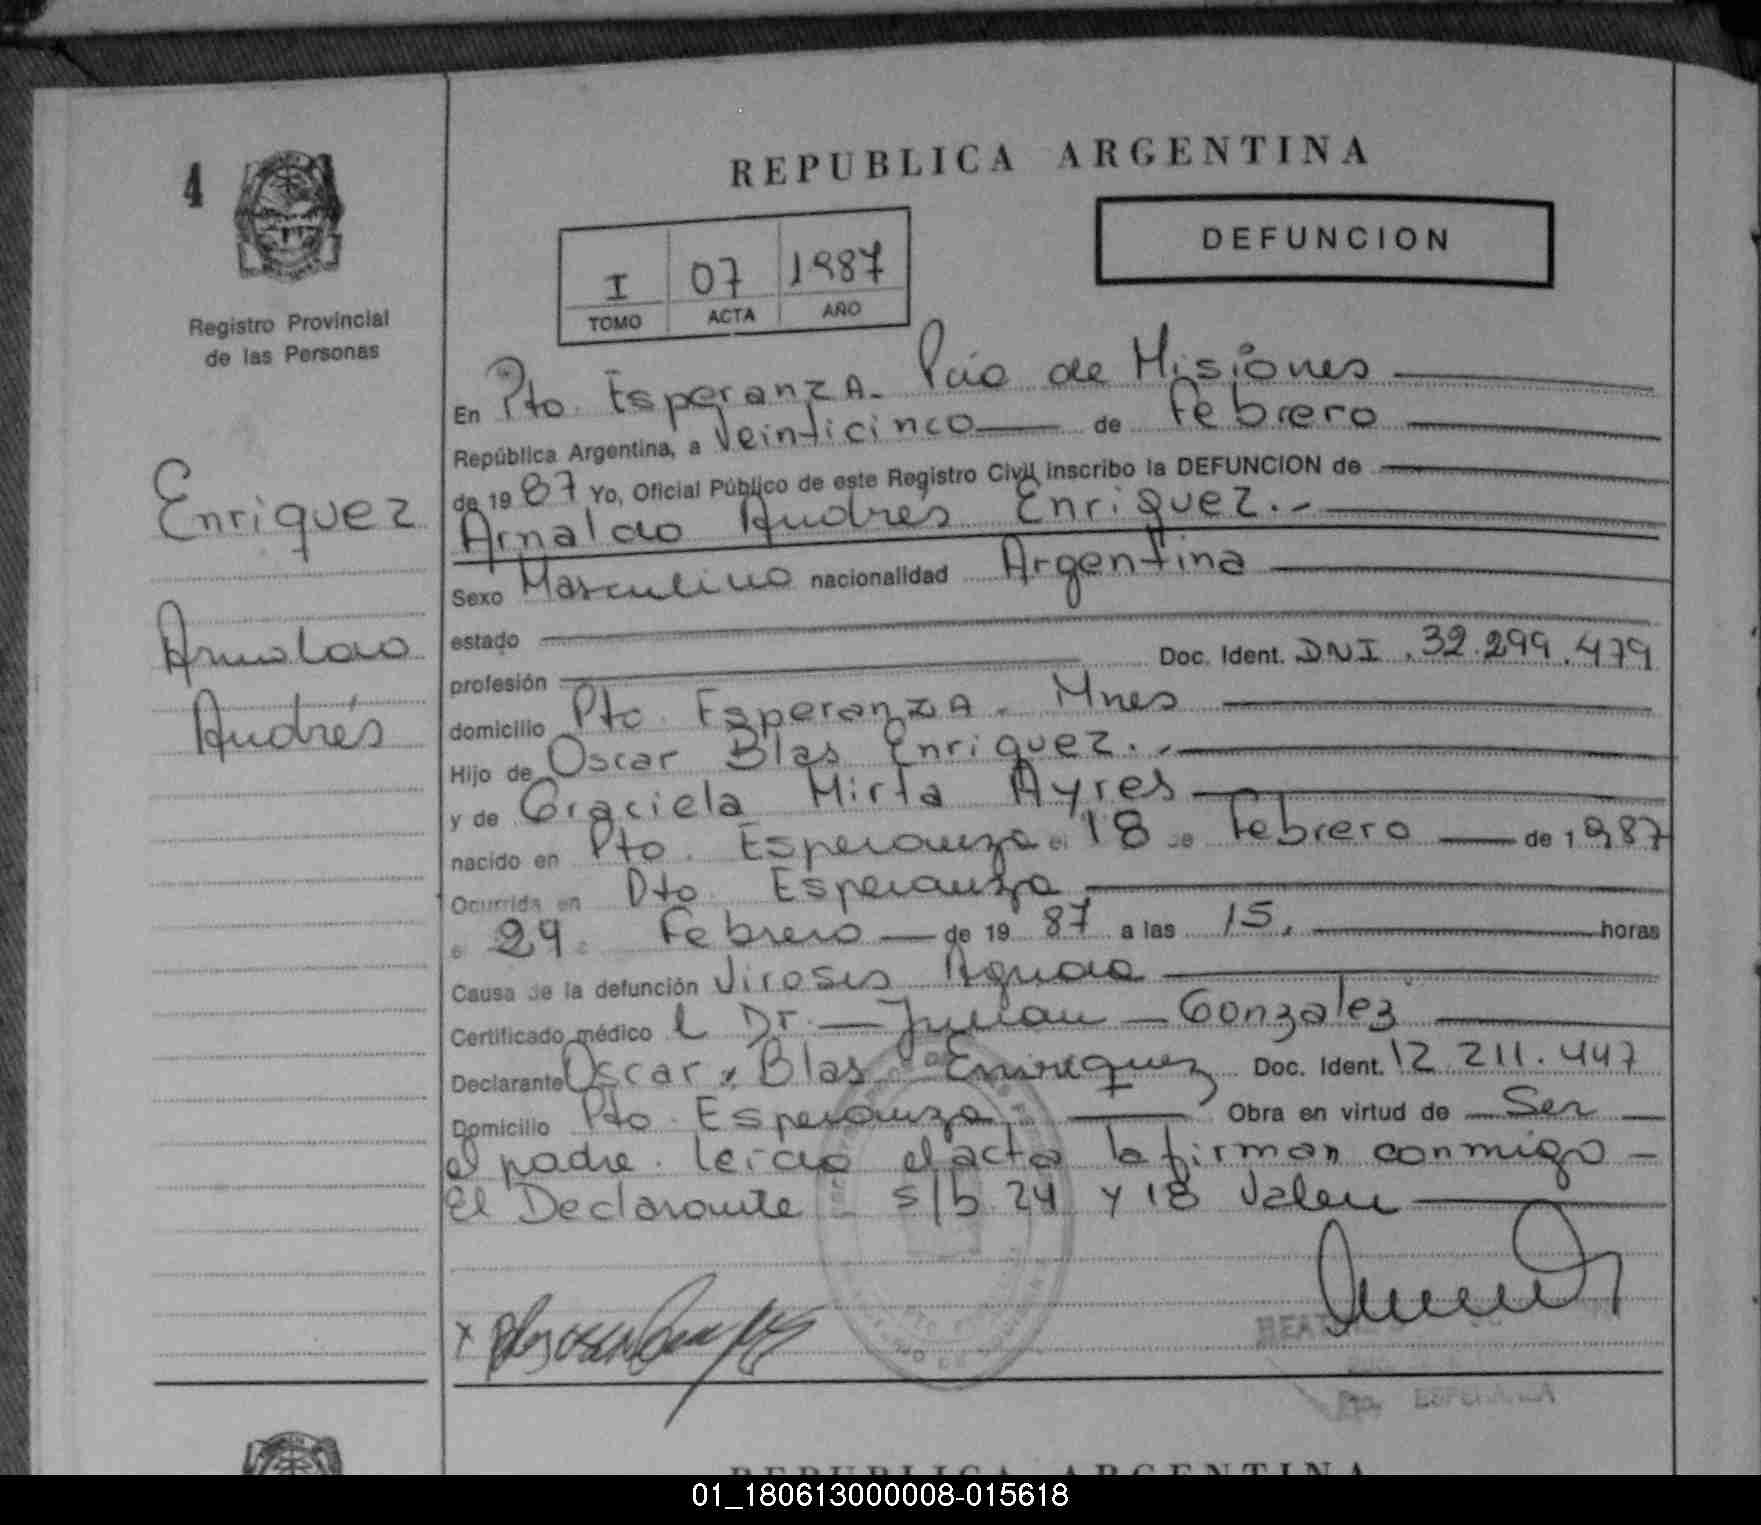 4
REPUBLICA ARGENTINA
DEFUNCION
I 07 1987
TOMO ACTA AÑO
Registro Provincial
de las Personas
Enriquez
Arnaldo
Andrés
En Pto. Esperanza - Pcia de Misiones
República Argentina, a Veinticinco de Febrero
de 1987 Yo, Oficial Público de este Registro Civil, inscribo la DEFUNCION de
Arnaldo Andrés Enriquez.-
Sexo Masculino nacionalidad Argentina
estado
profesión Doc. Ident. DNI. 32.299.479
domicilio Pto. Esperanza - Mnes
Hijo de Oscar Blas Enriquez.-
y de Graciela Mirta Ayres
nacido en Pto. Esperanza el 18 de Febrero de 1987
Ocurrida en Pto. Esperanza
el 24 de Febrero de 1987 a las 15, horas
Causa de la defunción Virosis Aguda
Certificado médico Dr. Julian Gonzalez
Declarante Oscar Blas Enriquez Doc. Ident. 12.211.447
Domicilio Pto. Esperanza Obra en virtud de Ser
el padre. leida el acta la firman conmigo -
El Declarante - s/b 24 y 18 Valen
Pto. ESPERANZA
REPUBLICA ARGENTINA
01_180613000008-015618